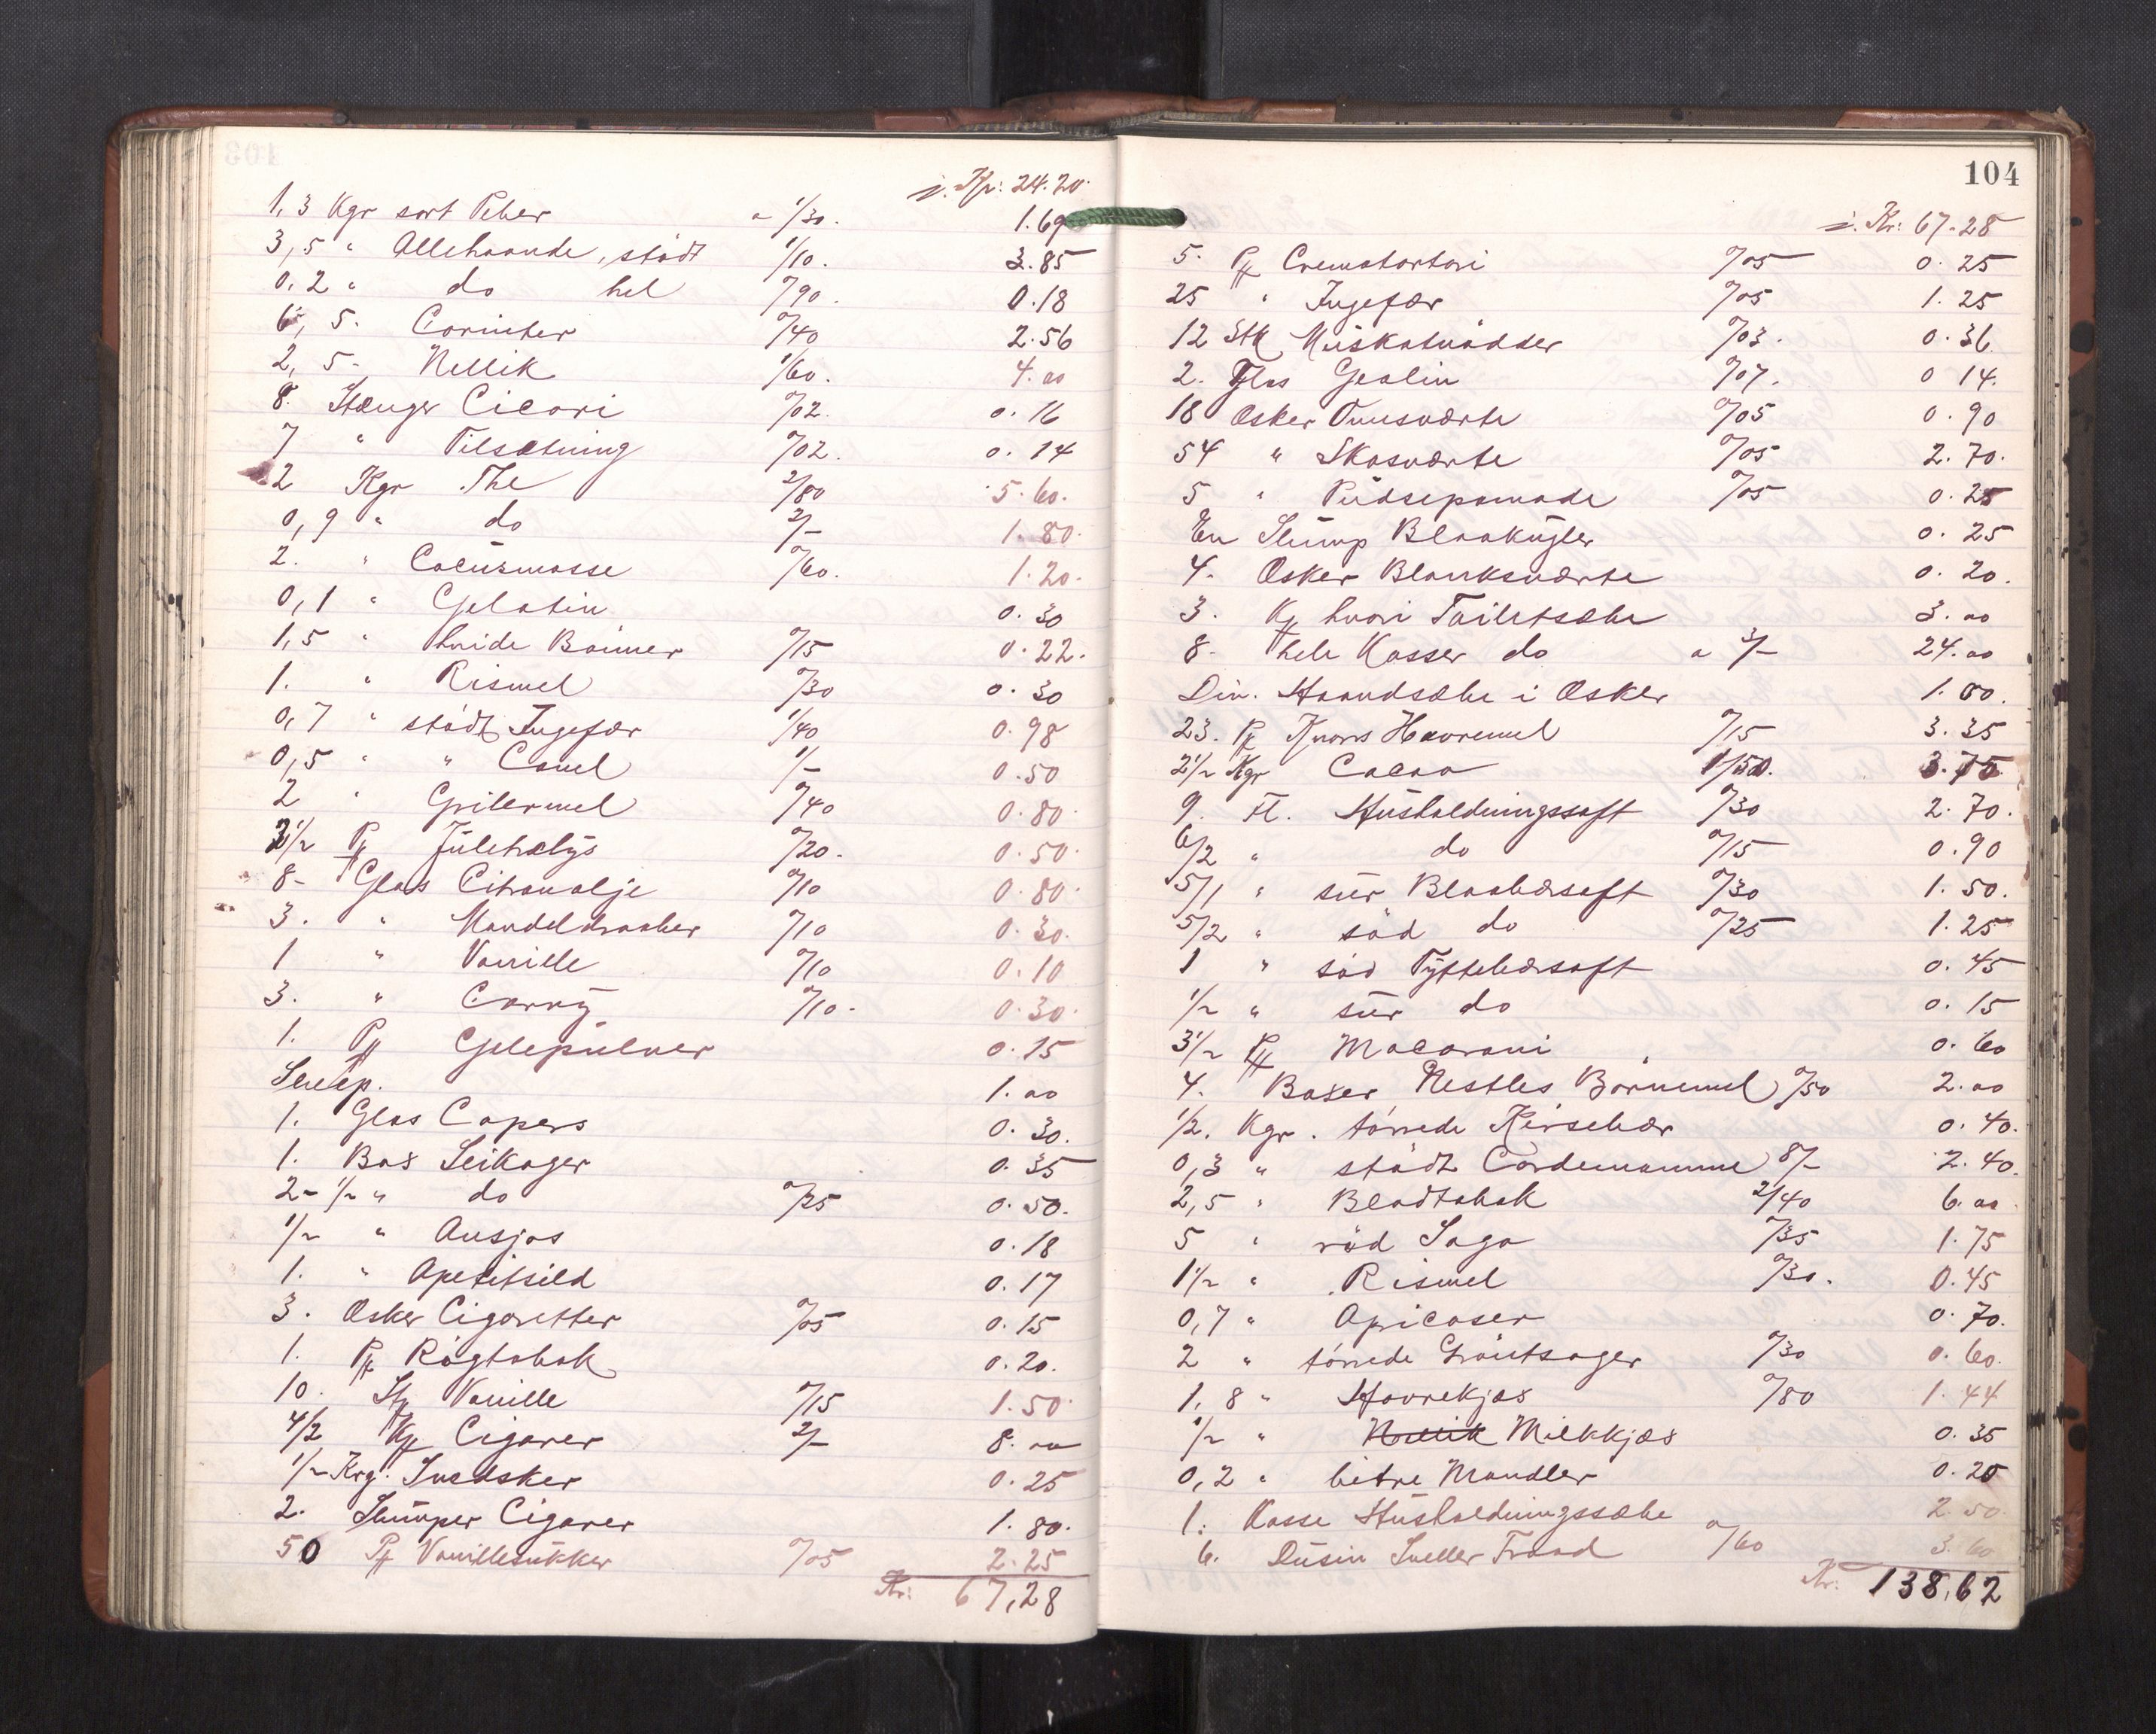 Kr: 24.20.
1,3 Kgr sort Peber a 1/30. 1.69
3,5 " Allehaande, stødt 1/10. 3.85
0,2 " do hel 0/90. 0.18
6, 5. Corinter 0/40 2.56
2, 5 - Nellik 1/60. 4.00
8. Stænger Cicori 0/02. 0.16
7 " Tilsætning 0/02. 0.14
2 Kgr The 2/80 5.60.
0,9 " do 2/- 1.80.
2. " Cocusmasse 0/60. 1.20.
0,1 " Gelatin 0.30
1,5 " hvide Bønner 0/15 0.22.
1. " Rismel 0/30 0.30
0,7 " stødt Ingefær 1/40 0.98
0,5 " " Canel 1/- 0.50
2 " Grilermel 0/40 0.80.
2 1/2 Pk Juletrælys 0/20. 0.50.
8 - Glas Citronolje 0/10 0.80.
3. " Mandeldraaber 0/10 0.30.
1 " Vanille 0/10 0.10
3. " Carry 0/10. 0.30.
1. Pk Gelepulver 0.15
1.00
1. Glas Capers 0.30.
1. Box Seikager 0.35
2 - 1/2 " do 0/25 0.50.
1/2 " Ansjos 0.18
1. " Apetitsild 0.17
3. Æsker Cigaretter 0/05 0.15
1. Pk Røgtobak 0.20.
10. Stg Vanille 0/15 1.50.
4/2 Ks Cigarer 2/- 8.00
1/2 Krg. 0.25
2. Slumper Cigarer 1.80.
50 Pk Vanillesukker 0/05 2.25
Kr: 67,28
104
Kr: 67.28
5. Pk Cremotartari 0/05 0.25
25 " Ingefær 0/05 1.25
12 Stk Muskatnødder 0/03. 0.36.
2. Glas Geolin 0/07. 0 14.
18 Æsker Ovnsværte 0/05 0.90
54 " Skosværte 0/05 2.70.
5 " Pudsepomade 0/05 0.25
En Slump Blaakugler 0.25
4. Æsker Blanksværte 0.20.
3. Ks hvori Toiletsæbe 3.00
8. hele Kasser do a 3/- 24.00
Div. Haandsæbe i Æsker 1.00.
23. Pk Knorrs Havremel 0/15 3.35
2 1/2 Kgr Cacao 1/50. 3.75
9. Fl. Husholdningssaft 0/30 2.70.
6/2 " do 0/15 0.90
5/1 " sur Blaabærsaft 0/30 1.50.
5/2 " sød do 0/25 1.25
1 " sød Tyttebærsaft 0.45
1/2 " sur do 0.15
3 1/2 Pk Macaroni 0.60
4. Boxer Nestles Børnemel 0/50 2.00
1/2. Kgr. tørrede Kirsebær 0.40.
0,3 " stødt Cardemomme 8/- 2.40.
2,5 " Bladtobak 2/40 6.00
5 " rød Sago 0/35 1.75
1 1/2 " Rismel 0/30. 0.45
0,7 " Apricoser 0.70.
2 " tørrede Grøntsager 0/30 0.60.
1, 8 " Havrekjæs 0/80 1.44
1/2 " Nellik Milkkjæs 0.35
0,2 " bitre Mandler 0.20
1. Kasse Husholdningssæbe 2.50.
6. Dusin Sneller Traad 0/60 3.60
Kr: 138,62